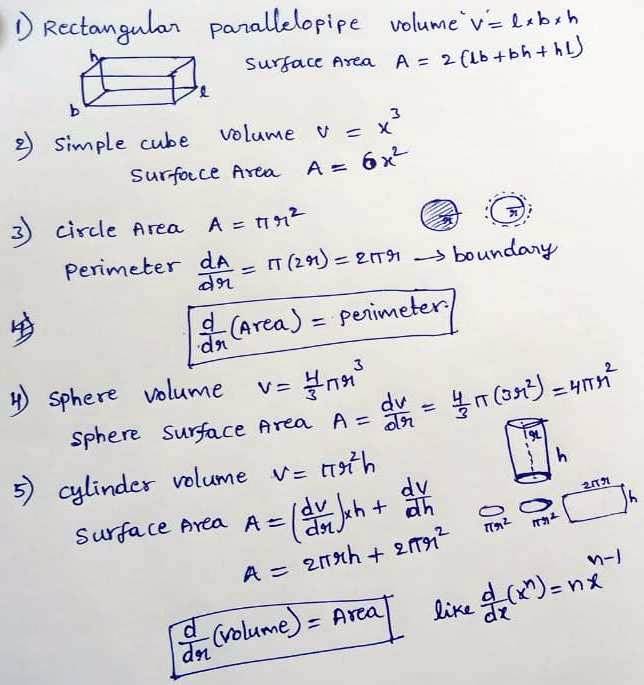 1) Rectangular parallelopipe volume 'V' = l×b×h
Surface Area A = 2(lb+bh+hl)
h
b
l
2) Simple cube volume v = x³
Surface Area A = 6x²
3) circle Area A = πr²
r r
Perimeter dA/dr = π(2r) = 2πr → boundary
4)
d/dr (Area) = perimeter.
4) Sphere volume V = 4/3 πr³
Sphere Surface Area A = dv/dr = 4/3 π(3r²) = 4πr²
5) cylinder volume V = πr²h
r h
Surface Area A = (dv/dr)×h + dv/dh
πr² πr² 2πr h
A = 2πrh + 2πr²
d/dr (volume) = Area like d/dx (xⁿ) = nxⁿ⁻¹